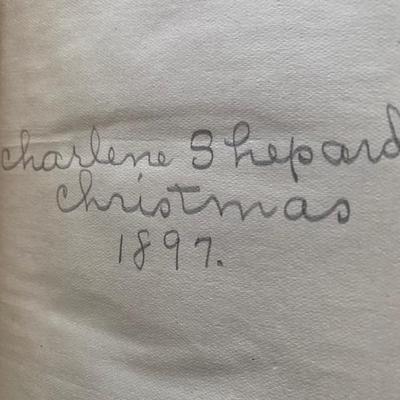 Charlene Shepard
Christmas
1897.